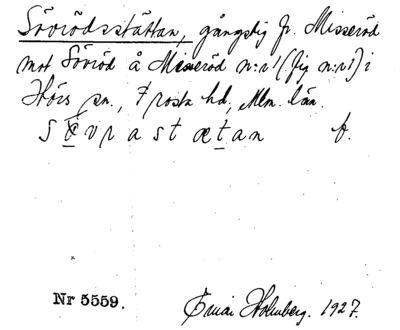 Sövrödsstättan, gångstig fr. Misseröd
mot Sövröd å Misseröd n:r 1 (fig n:r 1) i
Hörs sn., Frosta hd, Mlm. län.
s œ v r a s t æ t a n f.
Nr 5559. Holmberg. 1927.